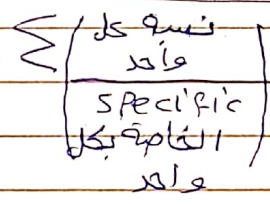 Σ نسبة كل
واحد
specific
الخاصة بكل
واحد